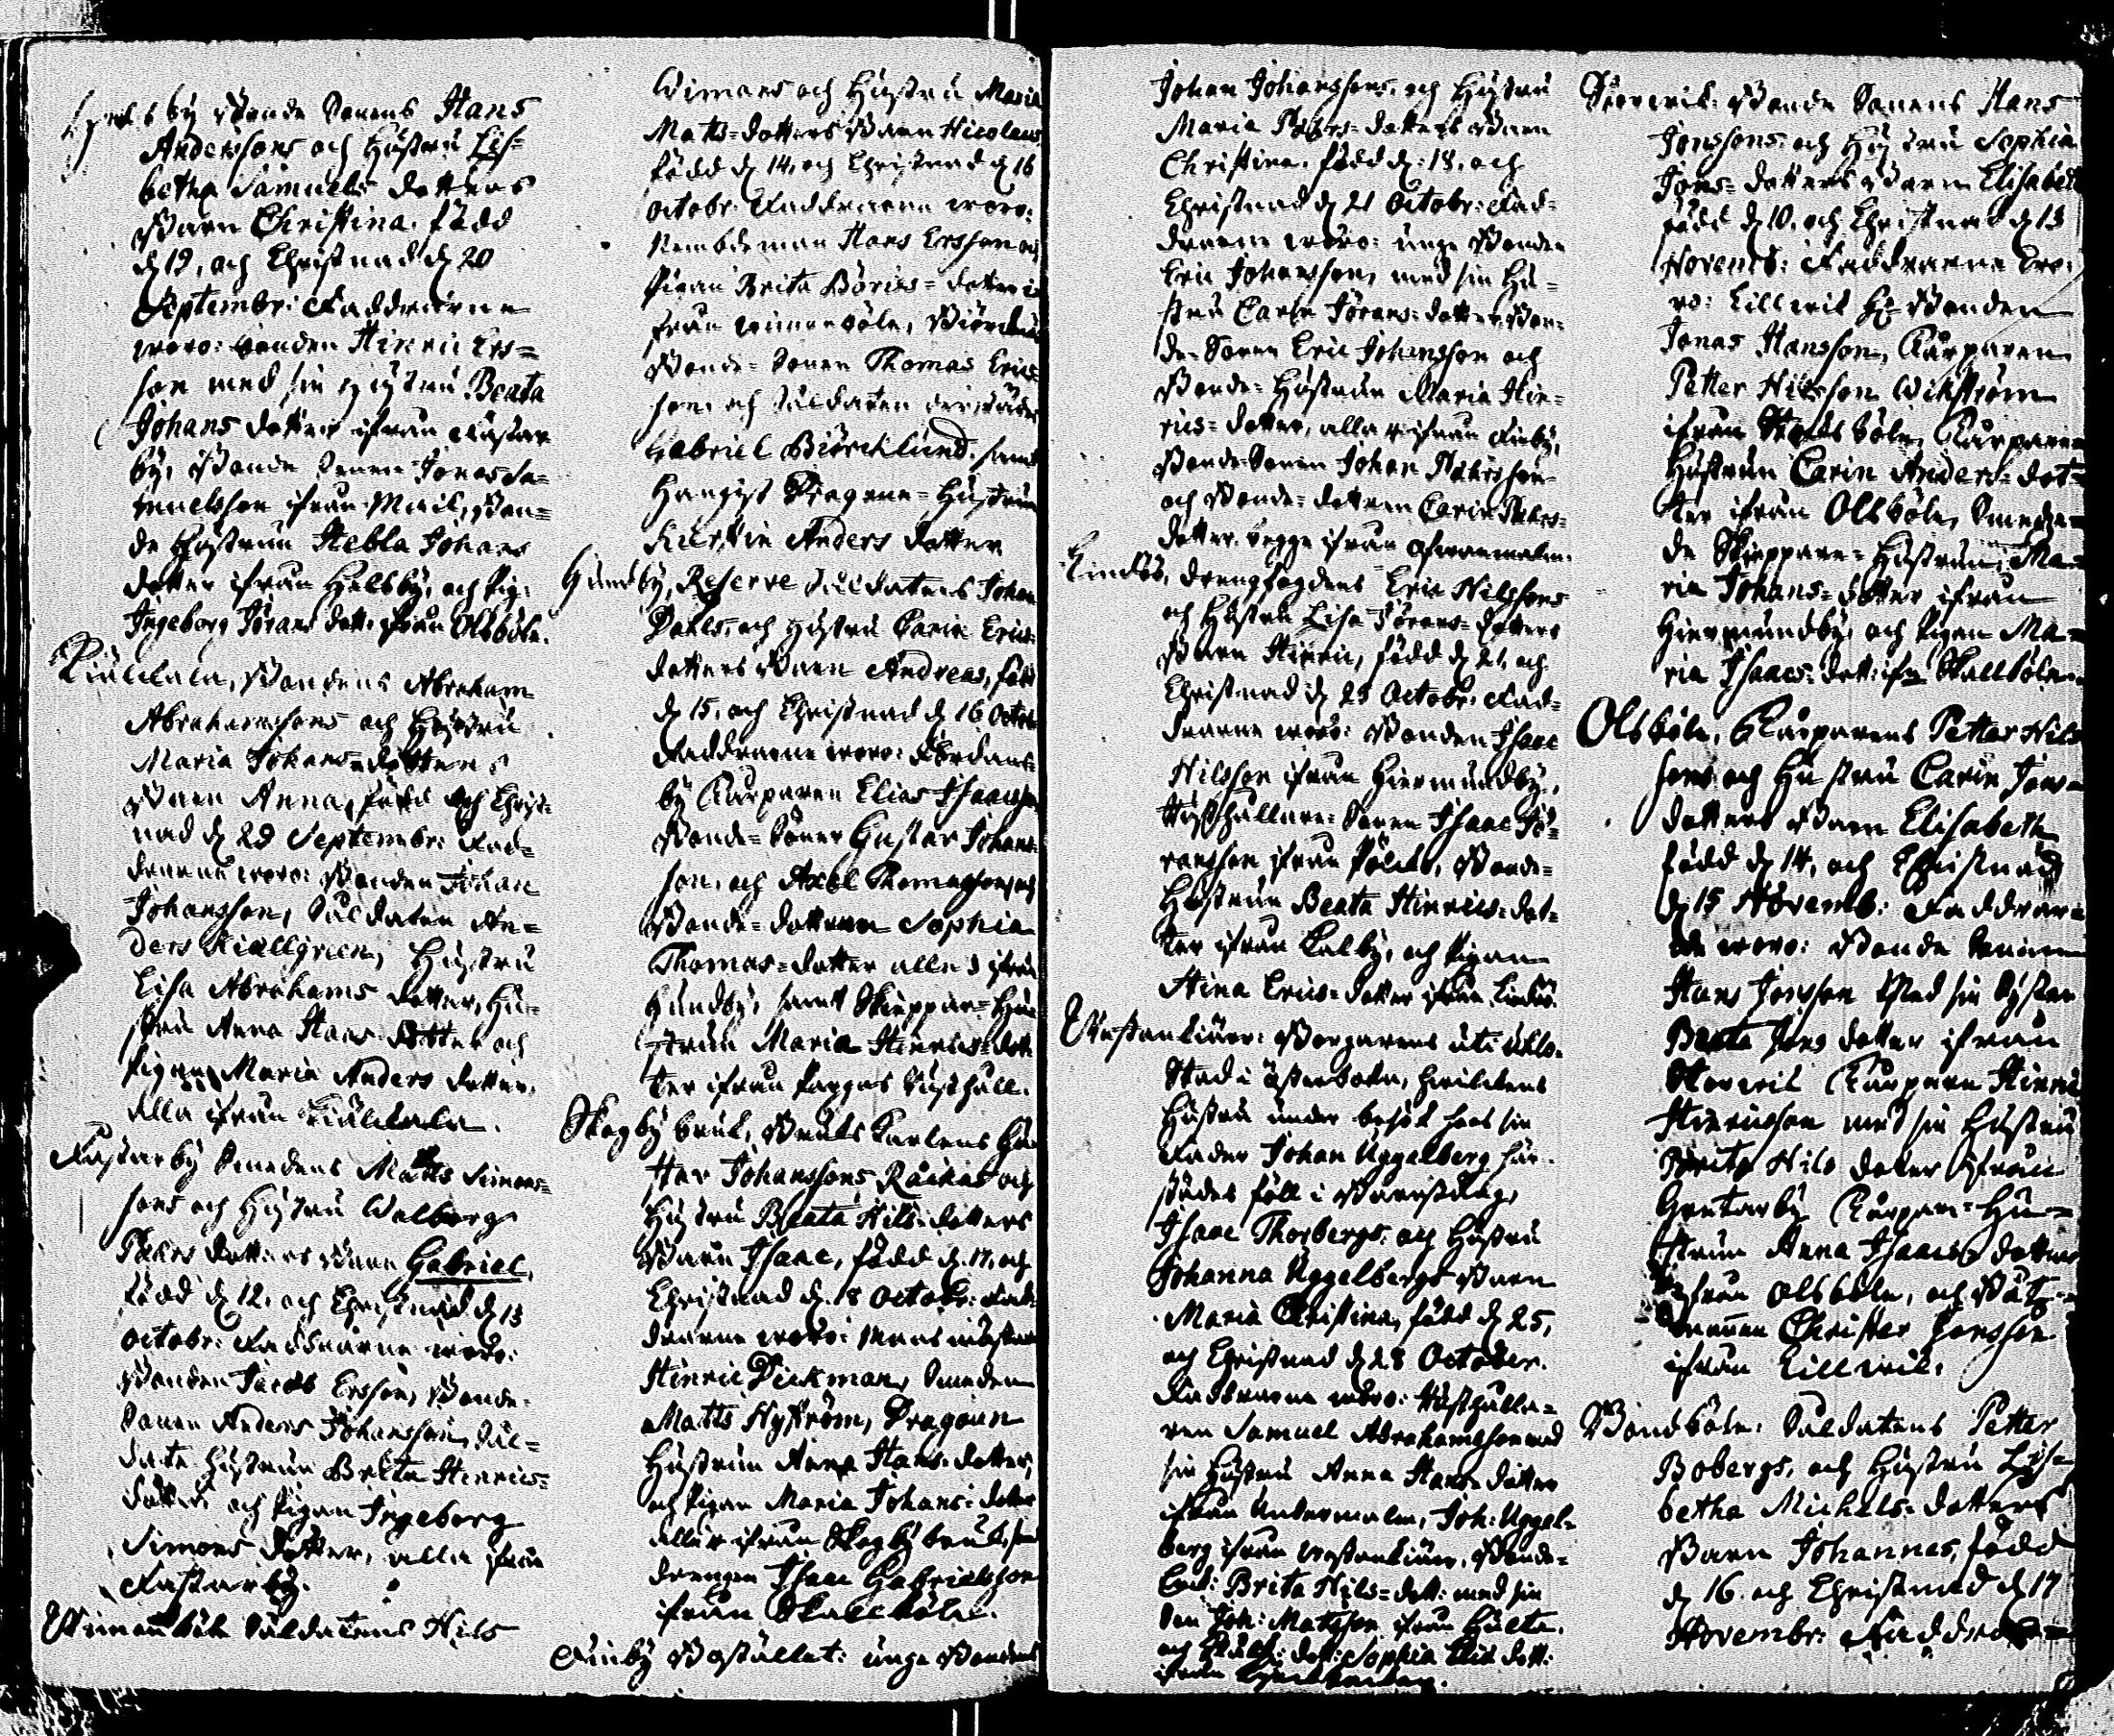 by Bonde Sonens Hans
Anderssons och Hustru Lis-
betha Samuels dotters
Barn Christina. född
d 19, och Christnad d 20
Septembr: Faddrarne
woro: bonden Hinric Ers-
son med sin Hustru Beata
Johans dotter ifrån Fastar
by, Bonde Sonen Jonas Sa-
muelsson ifrån Mail, Bon-
de Hustrun Hebla Johans
dotter ifrån Helsby, och Pig:
Ingeborg Jörans dott: ifrån Olsböle.
Bondens Abraham
Abrahamssons och Hustru
Maria Johans dotters
Barn Anna, född och Christ-
nad d 29 Septembr: Fad-
drarne woro: Bonden Johan
Johansson, Soldaten An-
ders Kiällgren, Hustru
Lisa Abrahams dotter, Hu-
stru Anna Hans dotter och
Pigan Maria Anders dotter,
alla ifrån
Fastarby Smedens Matts Simons-
sons och Hustru Walborg
Påhrs dotters Barn Gabriel,
född d 12. och Christnad d 13
octobr: Faddrarne woro:
Bonden Jacob Ersson, Bonde-
Sonen Anders Johansson, Sol-
date Hustrun Brita Hinrics-
dotter och Pigan Ingeborg
Simons dotter, alla ifrån
Fastarby.
Wimanböle Soldatens Nils
Wimans och Hustru Maria
Matts-dotters Barn Nicolaus,
född d 14, och Christnad d 16
octobr. Faddrarne woro:
Nembdeman Hans Ersson och
Pigan Brita Böries-dotter
ifrån Wimanböle,
Bonde-Sonen Thomas Erics-
son, och Soldaten
Gabriel Biörcklund. samt
Dragoune-Hustrun
Kierstin Anders dotter
Gundby, Reserve Soldatens Johan
Dahls, och Hustru Carin Erics-
dotters Barn Andreas, född
d 15, och Christnad d 16 Octobr
Faddrarne woro:
by Torparen Elias Isaacsson
Bonde-Sonen Gustav Johans-
son, och Axel Thomasson och
Bonde-dottren Sophia
Thomas-dotter alla ifrån
Gundby, samt Skieppar-Hu-
strun Maria Hinrics-dot-
ter ifrån Pargas
Skogby bruk, Bruks Karlens Gu-
stav Johanssons och
Hustru Beata Nils-dotters
Barn Isaac, född d. 17, och
Christnad d. 18 Octobr: Fad-
drarne woro:
Hinric Dickman, Smeden
Matts Nyström, Dragoun
Hustrun Anna Hans-dotter,
och Pigan Maria Johans-dotter
alla ifrån Skogby bruk, samt
drengen Isaac Gabrielsson
ifrån Skallböle.
Finby Bostället: unge Bondens
Johan Johanssons, och Hustru
Maria Påhrs-dotters Barn
Christina. född d: 18. och
Christnad d 21 Octobr: Fad-
drarne woro: unge Bonden
Eric Johansson, med sin Hu-
stru Carin Jörans-dotter, Bon-
de-Sonen Eric Johansson och
Bonde-Hustrun Maria Hin-
rics-dotter, alla ifrån Finby,
Bonde-Sonen Johan Påhrsson
och Bonde-dottren Carin Påhrs-
dotter. begge ifrån
Lindö, drengfogdens Eric Nilssons
och Hustru Lisa Jörans-dotters
Barn Hinric, född d 21, och
Christnad d 23 Octobr: Fad-
drarne woro: Bonden Isaac
Nilsson ifrån Hiermundby,
Rusthållare-Sonen Isaac Jö-
ransson ifrån Bonde-
Hustrun Beata Hinrics-dot-
ter ifrån Kalby, och Pigan
Stina Erics-dotter ifrån Lindö.
Westankiärr: Borgarens uti Uhlo-
Stad i Österbotn, hwilckens
Hustru under besök hos sin
Fader Johan Uggelberg här-
städes föll i Barnsäng,
Isaac Thorbergs: och Hustru
Johanna Uggelbergs Barn
Maria Christina, född d 25,
och Christnad d 28 October.
Faddrarne woro: Rusthålla-
ren Samuel Abrahamsson med
sin Hustru Anna Hans-dotter
ifrån Undermalm, Joh: Uggel-
berg ifrån Westankiärr, Bonde-
Brita Nils-dott: med sin
Son Joh: Matsson ifrån Hulta,
och dott: Sophia dott:
ifrån
Bonde Sonens Hans
Jonssons: och Hustru Sophia
Jöns-dotters Barn Elisabeth
född d 10. och Christnad d 13
Novemb: Faddrarne wo-
ro: Lillwik Bonden
Jonas Hansson, Torparen
Petter Nilsson Wikström
ifrån Torparen
Hustrun Carin Anders-dot-
ter ifrån Olsböle,
de Skieppare-Hustrun, Ma-
ria Johans-dotter ifrån
Hiermundby, och Pigan Ma-
ria Isaacs-dott: ifrn Skallböle.
Olsböle, Torparens Petter Nils
sons och Hustru Carin Jons-
dotters Barn Elisabeth
född d 14, och Christnad
d 15 Novemb: Faddrar-
ne woro: Bonde Sonen
Hans Jonsson Med sin Syster
Beata Jons dotter ifrån
Storwik Torparn Hinric
Hinricsson med sin Hustru
Brita Nils dotter ifrån
Gretarby Torpar-Hu-
strun Anna Isaacs dotter
ifrån Olsböle, och Båtz-
mannen Christer Jonsson
ifrån Lillwik.
Bondböle: Soldatens Petter
Bobergs, och Hustru Lis-
betha Michels-dotters
Barn Johannes, född
d 16. och Christnad d 17
Novembr: Faddrar-